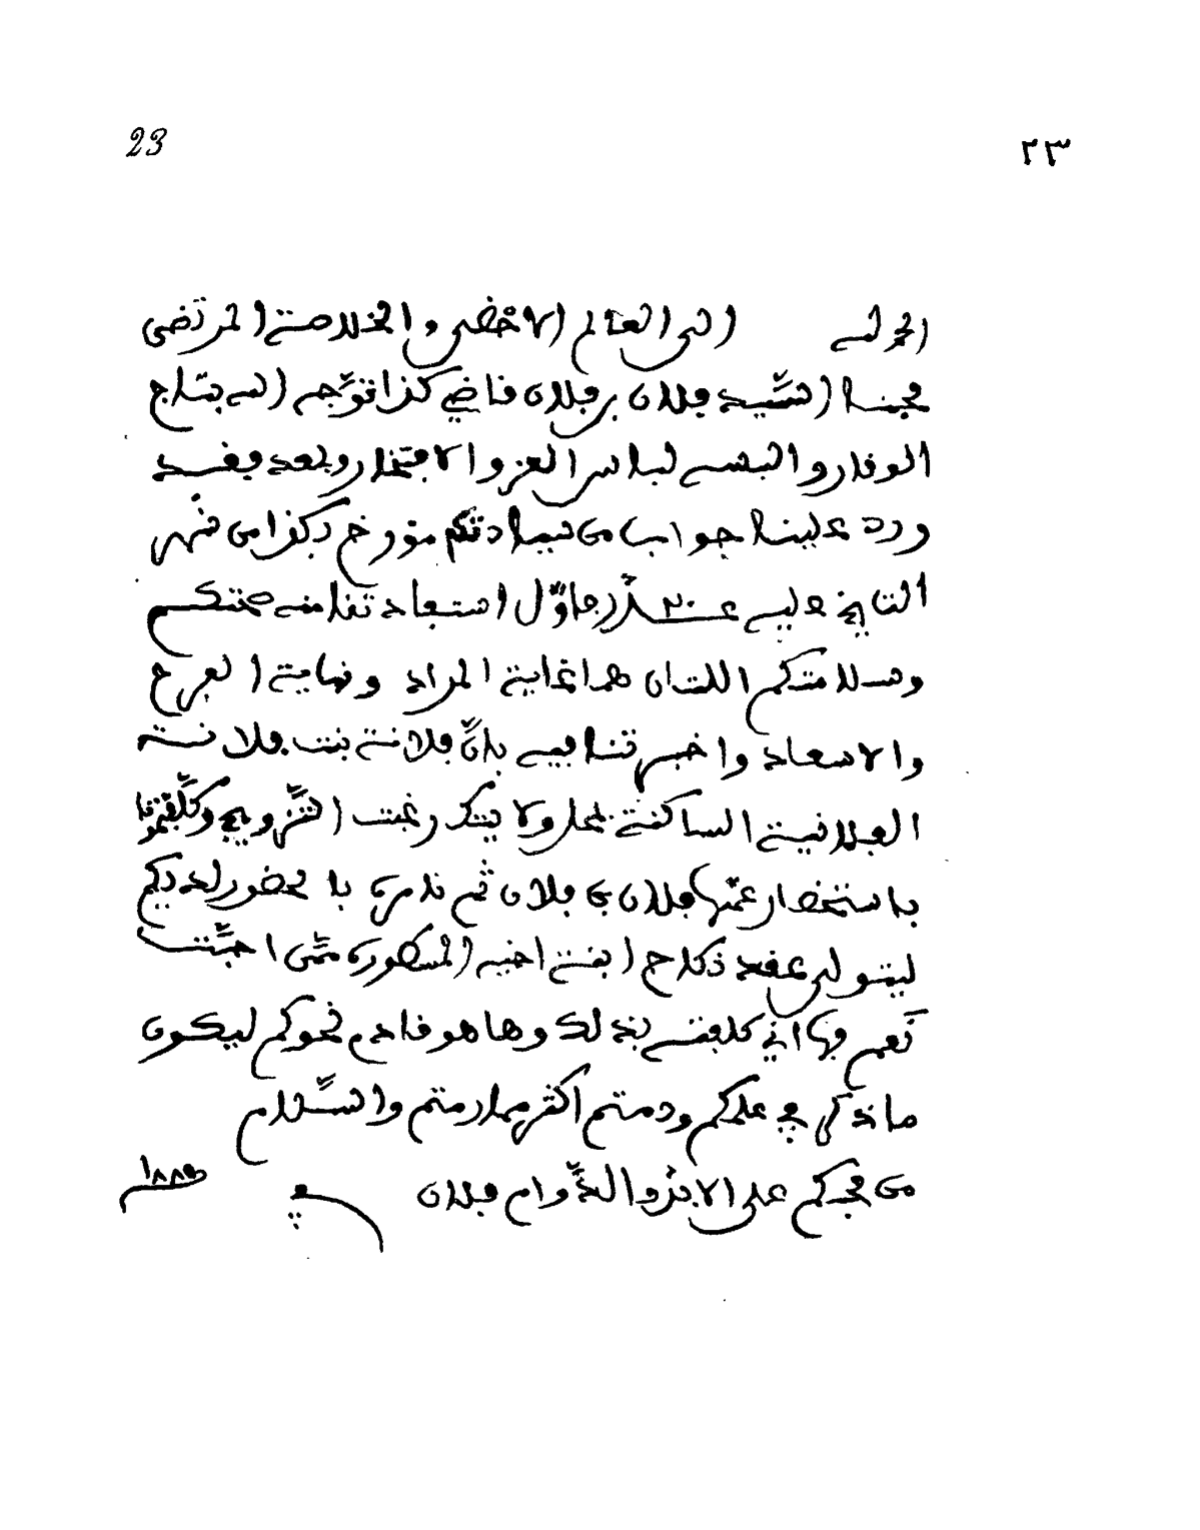 23 ٢٣
الحمد لله الى العالم الاخضى والخلاصة المرتضى
محبنا السّيد فلان بن فلان قاضي كذا توّجه الله بتاج
الوقار والبسه لباس العز والافتخار وبعد فقد
ورد علينا جواب من سيادتكم مؤرخ بكذا من شهر
التاريخ عليه اوّل استفاد تفامنه صحتكم
وسلامتكم اللتان هما غاية المراد ونهاية الفرح
والاسعاد واخبرتنا فيه بانّ فلانة بنت فلانة
الفلانية الساكنة بمحل ولايتك رغبت التّزويج وكلّفتمونا
باستحضار عمّها فلان بن فلان ثم نامره بالحضور لديكم
ليتولى عقد نكاح ابنة اخيه المسطورة متى احبّت
نعم فها اني كلفته بذلك وها هو قادم نحوكم ليكون
ما ذكر في علمكم ودمتم اكثر مما رمتم والسّلام
من محبكم على الابد والدّوام فلان في ١٨٨٥